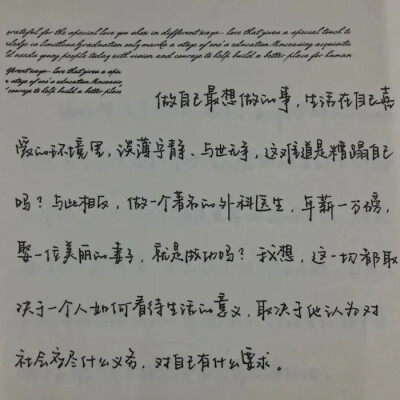 grateful for the special love you show in different ways - love that gives a special touch to
ledge is limitless Graduation only marks a stage of one's education acquisitio
ld needs young people today with vision and courage to help build a better place for human
fferent ways - love that gives a spe
a stage of one's education
courage to help build a better place
做自己最想做的事，生活在自己喜
爱的环境里，淡薄宁静、与世无争，这难道是糟蹋自己
吗？与此相反，做一个著名的外科医生，年薪一万磅，
娶一位美丽的妻子，就是成功吗？我想，这一切都取
决于一个人如何看待生活的意义，取决于他认为对
社会应尽什么义务，对自己有什么要求。